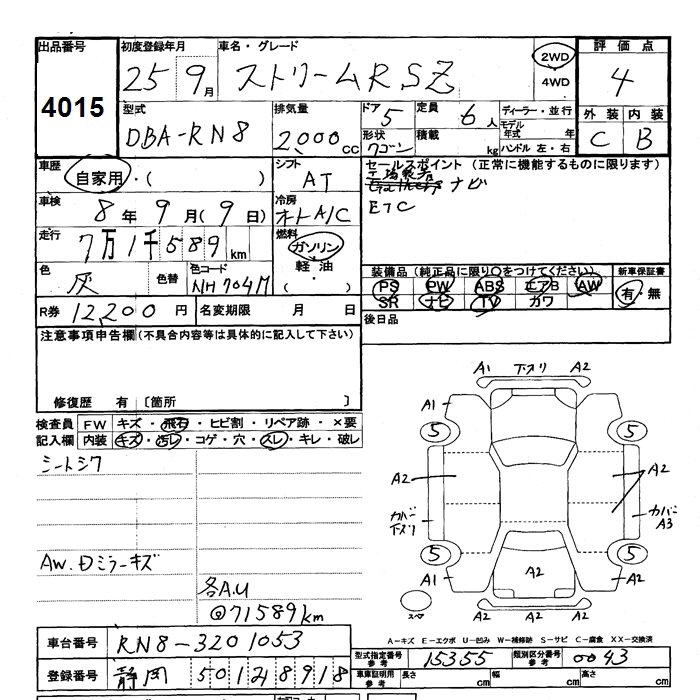 出品番号 初度登録年月 車名・グレード 評価点
4015
25 9月 ストリームRSZ 2WD 4WD 4
型式 排気量 ドア 5 定員 6人 ディーラー・並行 外装 内装
DBA-RN8 2,000cc 形状 ワゴン 積載 kg モデル年式 年 C B
ハンドル 左・右
車歴 自家用・( ) シフト AT セールスポイント (正常に機能するものに限ります)
ナビ
車検 8年 9月(9日) 冷房 オートA/C ETC
走行 7万1千589km 燃料 ガソリン
軽油
( )
色 灰 色替 色コード NH704M 装備品(純正品に限り○をつけてください) 新車保証書
PS PW ABS エアB AW 有・無
SR ナビ TV カワ
R券 12,200円 名変期限 月 日 後日品
注意事項申告欄(不具合内容等は具体的に記入して下さい)
修復歴 有 〔箇所 〕
検査員 FW キズ・飛石・ヒビ割・リペア跡・×要
記入欄 内装 キズ・汚レ・コゲ・穴・スレ・キレ・破レ
シートシワ
AW.Dミラーキズ
各A.U
@71589km
A1 下スリ A2
A1
5 5
A2 A2
カバー 下スリ カバー A3
5 5
A1 A2 A2
スペア A2 A2 A2
A-キズ E-エクボ U-凹み W-補修跡 S-サビ C-腐食 XX-交換済
車台番号 RN8-3201053
型式指定番号 参考 15355 類別区分番号 参考 0043
登録番号 静岡 501 ち 8918
車庫証明用 参考 長さ cm 幅 cm 高さ cm